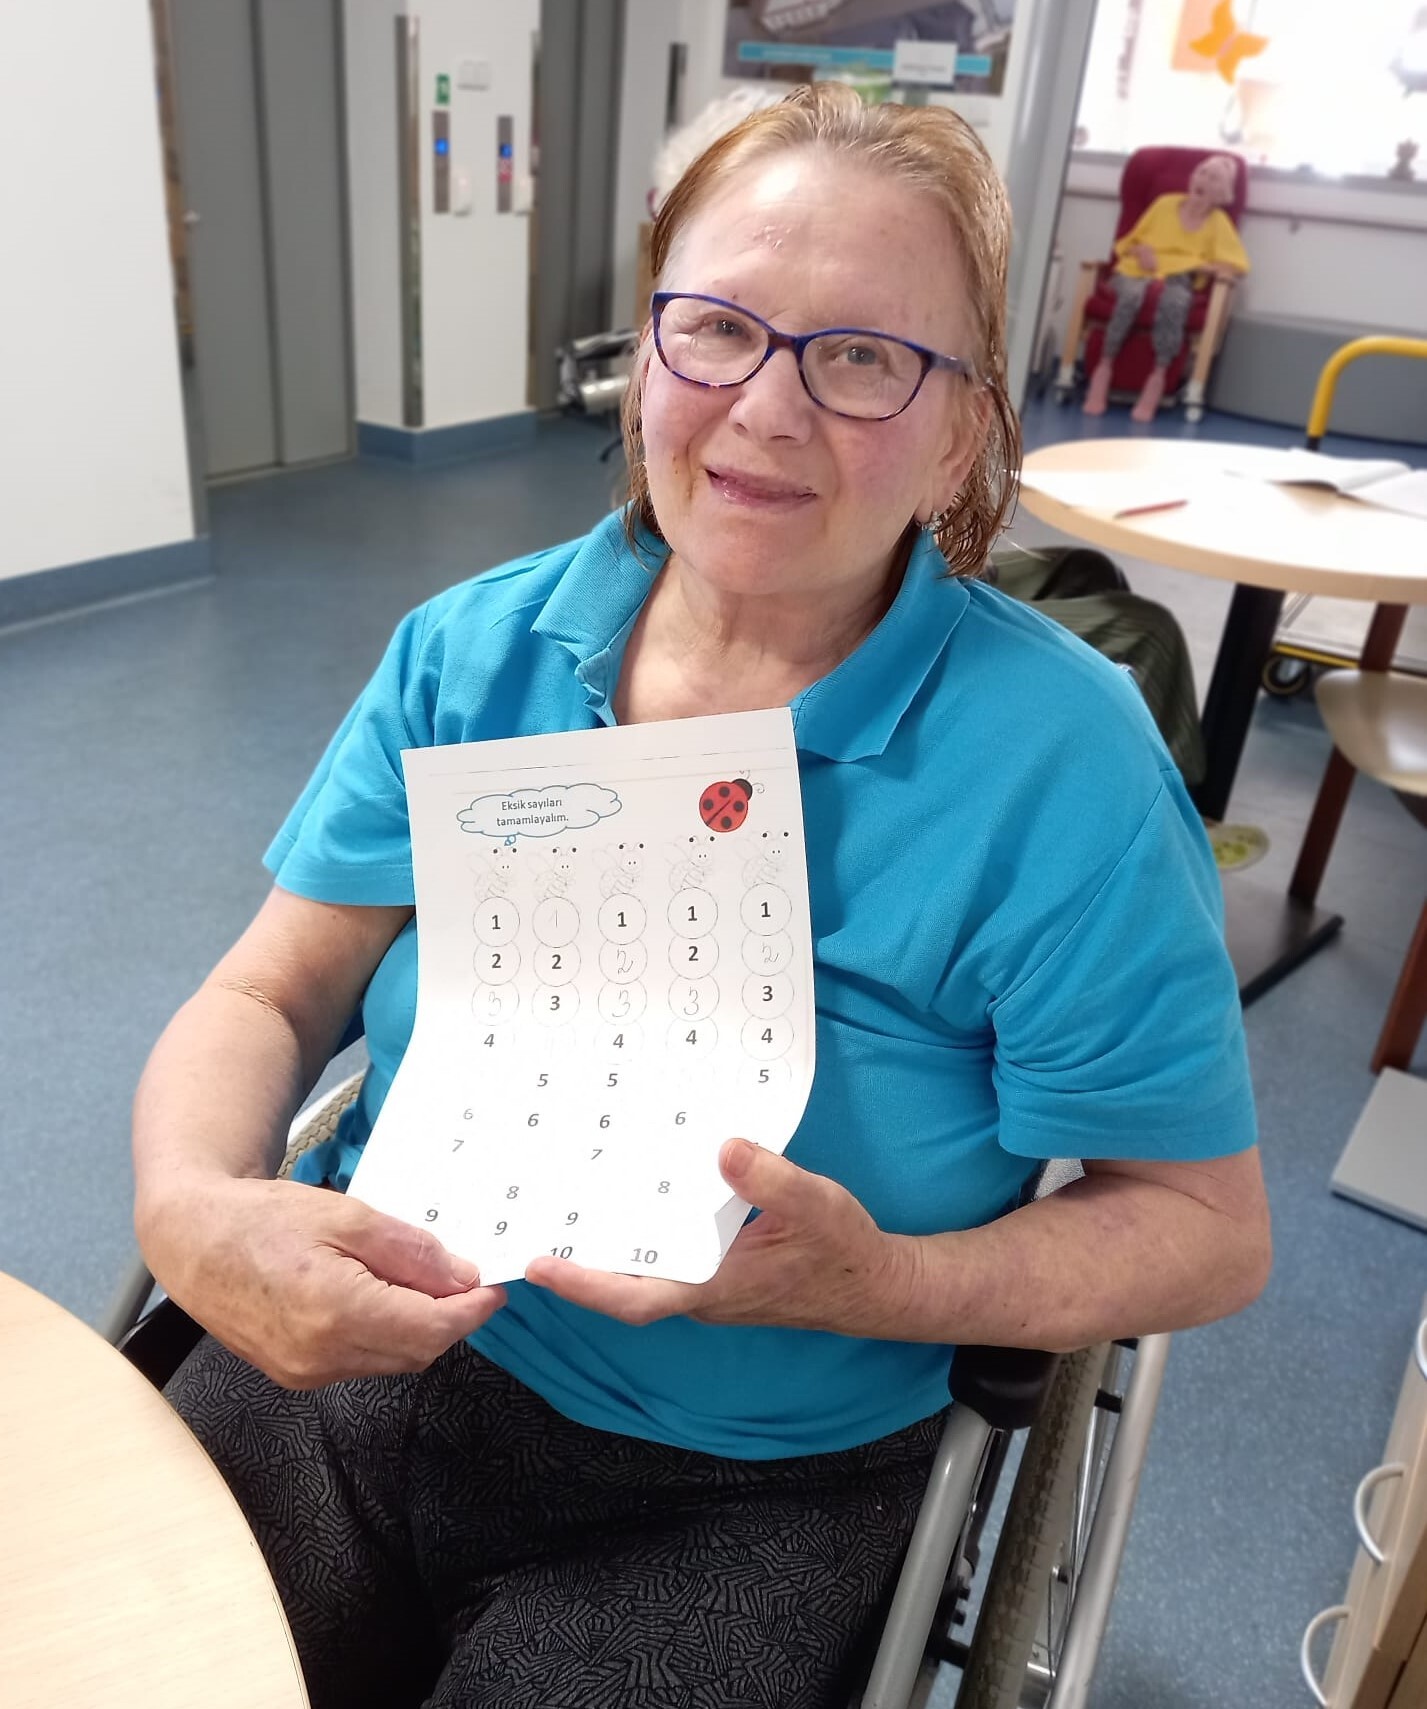 Eksik sayıları
tamamlayalım.
1 1 1 1 1
2 2 2 2 2
3 3 3 3 3
4 4 4 4
5 5 5
6 6 6 6
7 7
8 8
9 9 9
10 10